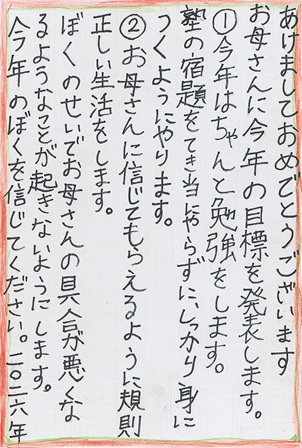 あけましておめでとうございます
お母さんに今年の目標を発表します。
①今年はちゃんと勉強をします。
塾の宿題をてき当にやらずに、しっかり身に
つくようにやります。
②お母さんに信じてもらえるように規則
正しい生活をします。
ぼくのせいでお母さんの具合が悪くな
るようなことが起きないようにします。
今年のぼくを信じてください。二〇二六年